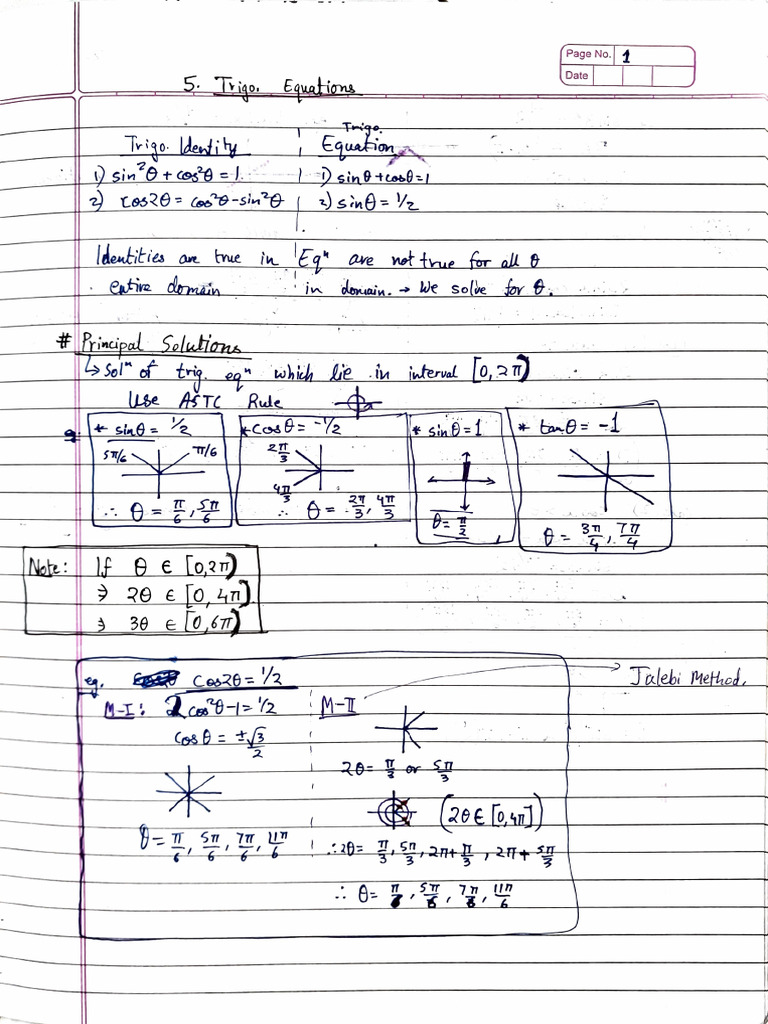 Page No. 1
Date
5. Trigo. Equations
Trigo. Identity
Trigo. Equation
1) sin²θ + cos²θ = 1
1) sinθ + cosθ = 1
2) cos2θ = cos²θ - sin²θ
2) sinθ = 1/2
Identities are true in
entire domain
Eqⁿ are not true for all θ
in domain. → We solve for θ.
# Principal Solutions
↳ Solⁿ of trig. eqⁿ which lie in interval [0, 2π)
Use ASTC Rule
* sinθ = 1/2
5π/6 π/6
∴ θ = π/6, 5π/6
* cosθ = -1/2
2π/3
4π/3
∴ θ = 2π/3, 4π/3
* sinθ = 1
θ = π/2
* tanθ = -1
θ = 3π/4, 7π/4
Note: If θ ∈ [0, 2π)
⇒ 2θ ∈ [0, 4π)
⇒ 3θ ∈ [0, 6π)
eg. cos2θ = 1/2
M-I: 2cos²θ - 1 = 1/2
cosθ = ±√3/2
θ = π/6, 5π/6, 7π/6, 11π/6
M-II
Jalebi Method.
2θ = π/3 or 5π/3
(2θ ∈ [0, 4π])
∴ 2θ = π/3, 5π/3, 2π + π/3, 2π + 5π/3
∴ θ = π/6, 5π/6, 7π/6, 11π/6